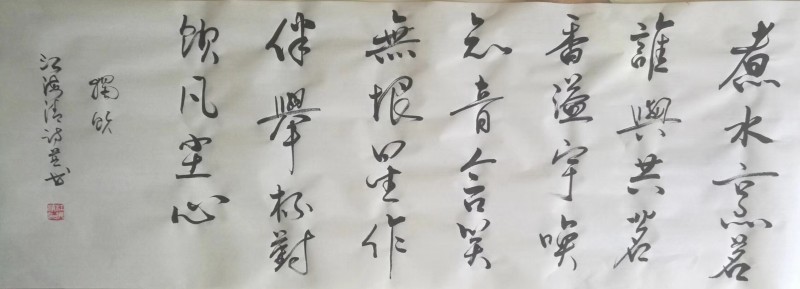 煮水烹茗
誰與共茗
香溢宇喚
知音含笑
無垠星作
伴舉杯對
飲凡尘心
獨飲
江海清詩並书